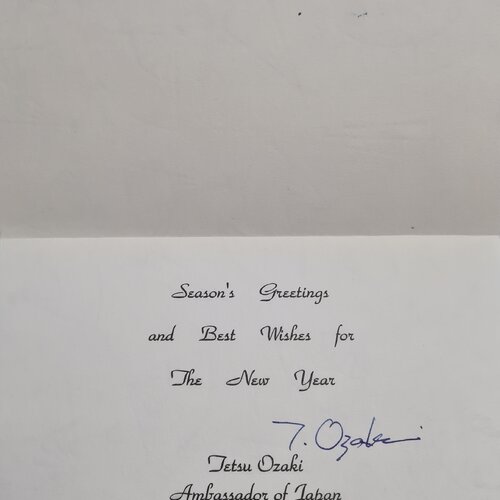 Season's Greetings
and Best Wishes for
The New Year
T. Ozaki
Tetsu Ozaki
Ambassador of Japan